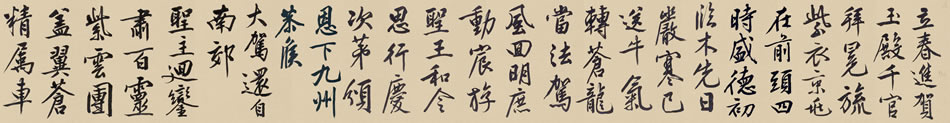 立春進賀
玉殿千官
拜冕旒
紫衣京兆
在前頭四
時盛德初
臨木先日
嚴寒已
送牛氣
轉蒼龍
當法駕
風回明庶
動宸游
聖王和令
思行慶
次第頒
恩下九州
恭俟
大駕還自
南郊
聖主迴鑾
肅百靈
紫雲團
蓋翼蒼
精屬車